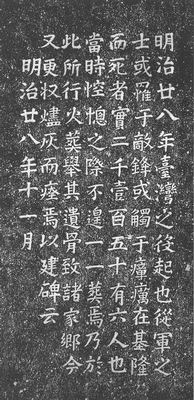 明治廿八年臺灣之役起也從軍之
士或罹于敵鋒或觸于瘴癘在基隆
而死者實二千壹百五十有六人也
當時悾憁之際不遑一一葬焉乃於
此所行火葬舉其遺骨致諸家鄉今
又更収燼灰而瘞焉以建碑云
明治廿八年十一月